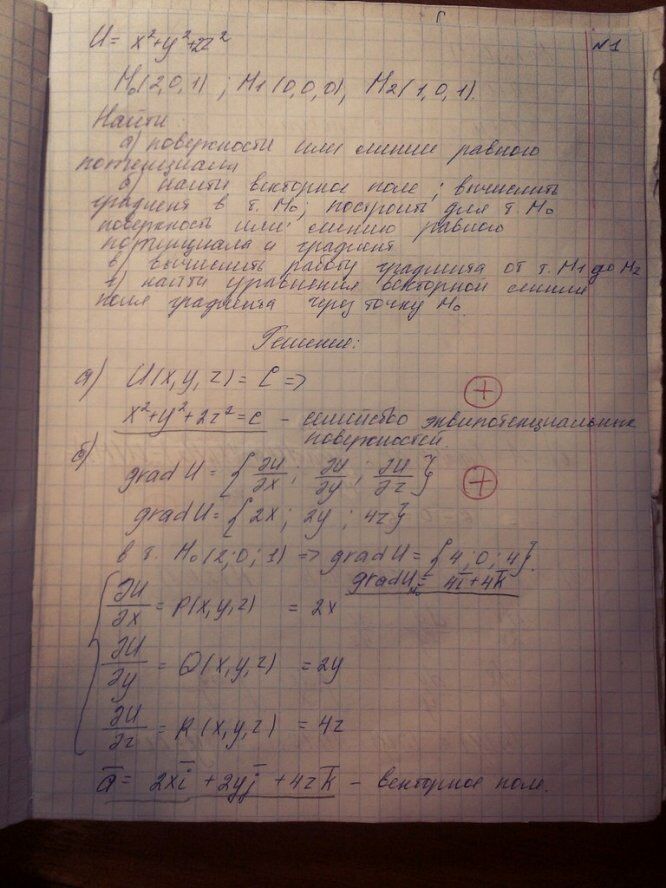 U = x²+y²+2z²
№1
M₀(2,0,1); M₁(0,0,0), M₂(1,0,1).
Найти:
а) поверхности или линии равного
потенциала
б) найти векторное поле; вычислить
градиент в т. M₀; построить для т. M₀
поверхность или линию равного
потенциала и градиент
в) вычислить работу градиента от т. M₁ до M₂
г) найти уравнения векторной линии
поля градиента через точку M₀.
Решение:
а) U(x,y,z) = C =>
x²+y²+2z²=c - семейство эквипотенциальных
поверхностей
б)
grad U = {∂U/∂x; ∂U/∂y; ∂U/∂z}
grad U = {2x; 2y; 4z}
в т. M₀(2;0;1) => grad U = {4;0;4}.
grad U M₀ = 4i̅+4k̅
∂U/∂x = P(x,y,z) = 2x
∂U/∂y = Q(x,y,z) = 2y
∂U/∂z = R(x,y,z) = 4z
a̅ = 2xi̅ + 2yj̅ + 4zk̅ - векторное поле.